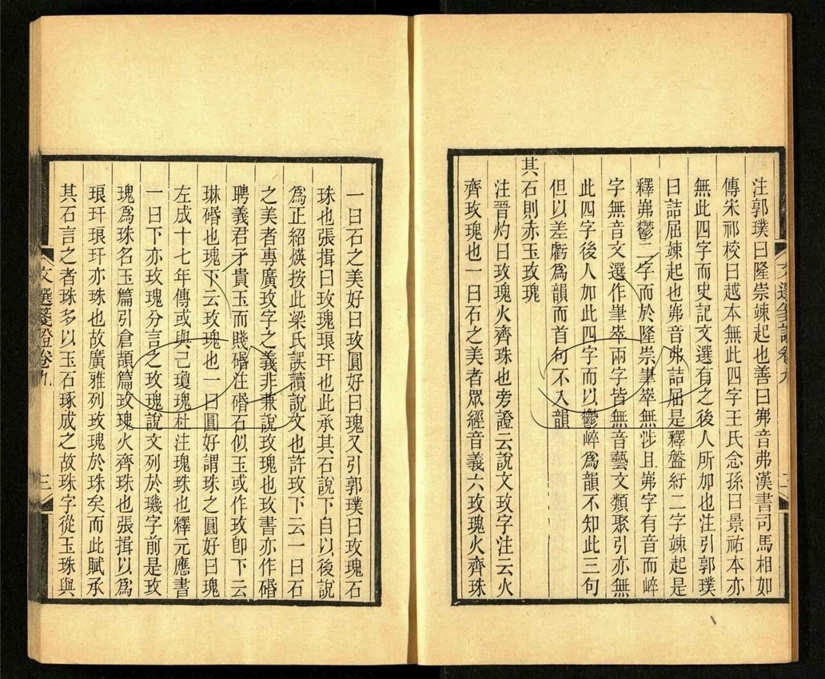 注郭璞曰隆崇竦起也善曰岪音弗漢書司馬相如
傳宋祁校曰越本無此四字王氏念孫曰景祐本亦
無此四字而史記文選有之後人所加也注引郭璞
曰詰屈竦起也岪音弗詰屈是釋盤紆二字竦起是
釋岪鬱二字而於隆崇嵂崒無涉且岪字有音而崪
字無音文選作嵂崒兩字皆無音藝文類聚引亦無
此四字後人加此四字而以鬱崪爲韻不知此三句
但以差虧爲韻而首句不入韻
其石則赤玉玫瑰
注晉灼曰玫瑰火齊珠也旁證云說文玫字注云火
齊玫瑰也一曰石之美者眾經音義六玫瑰火齊珠
一曰石之美好曰玫圓好曰瑰又引郭璞曰玫瑰石
珠也張揖曰玫瑰琅玕也此承其石說下自以後說
爲正紹煐按此梁氏誤讀說文也許玫下云一曰石
之美者專廣玫字之義非兼說玫瑰也玫書亦作㻉
聘義君子貴玉而賤㻉注㻉石似玉或作玫卽下云
琳㻉也瑰下云玫瑰也一曰圓好謂珠之圓好曰瑰
左成十七年傳或與己瓊瑰杜注瑰珠也釋元應書
一曰下亦玫瑰分言之玫瑰說文列於璣字前是玫
瑰爲珠名玉篇引倉頡篇玫瑰火齊珠也張揖以爲
琅玕琅玕亦珠也故廣雅列玫瑰於珠矣而此賦承
其石言之者珠多以玉石琢成之故珠字從玉珠與
文選箋證卷九
三